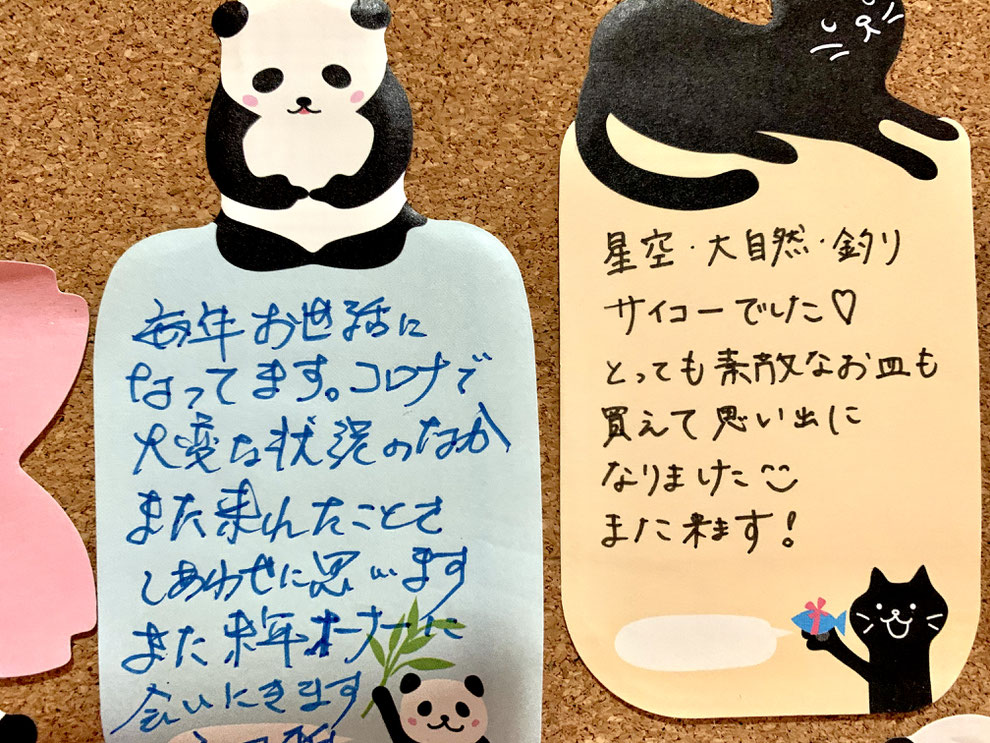 毎年お世話に
なってます。コロナで
大変な状況のなか
また来れたことを
しあわせに思います
また来年オーナーに
会いにきます
星空・大自然・釣り
サイコーでした♡
とっても素敵なお皿も
買えて思い出に
なりました
また来ます!